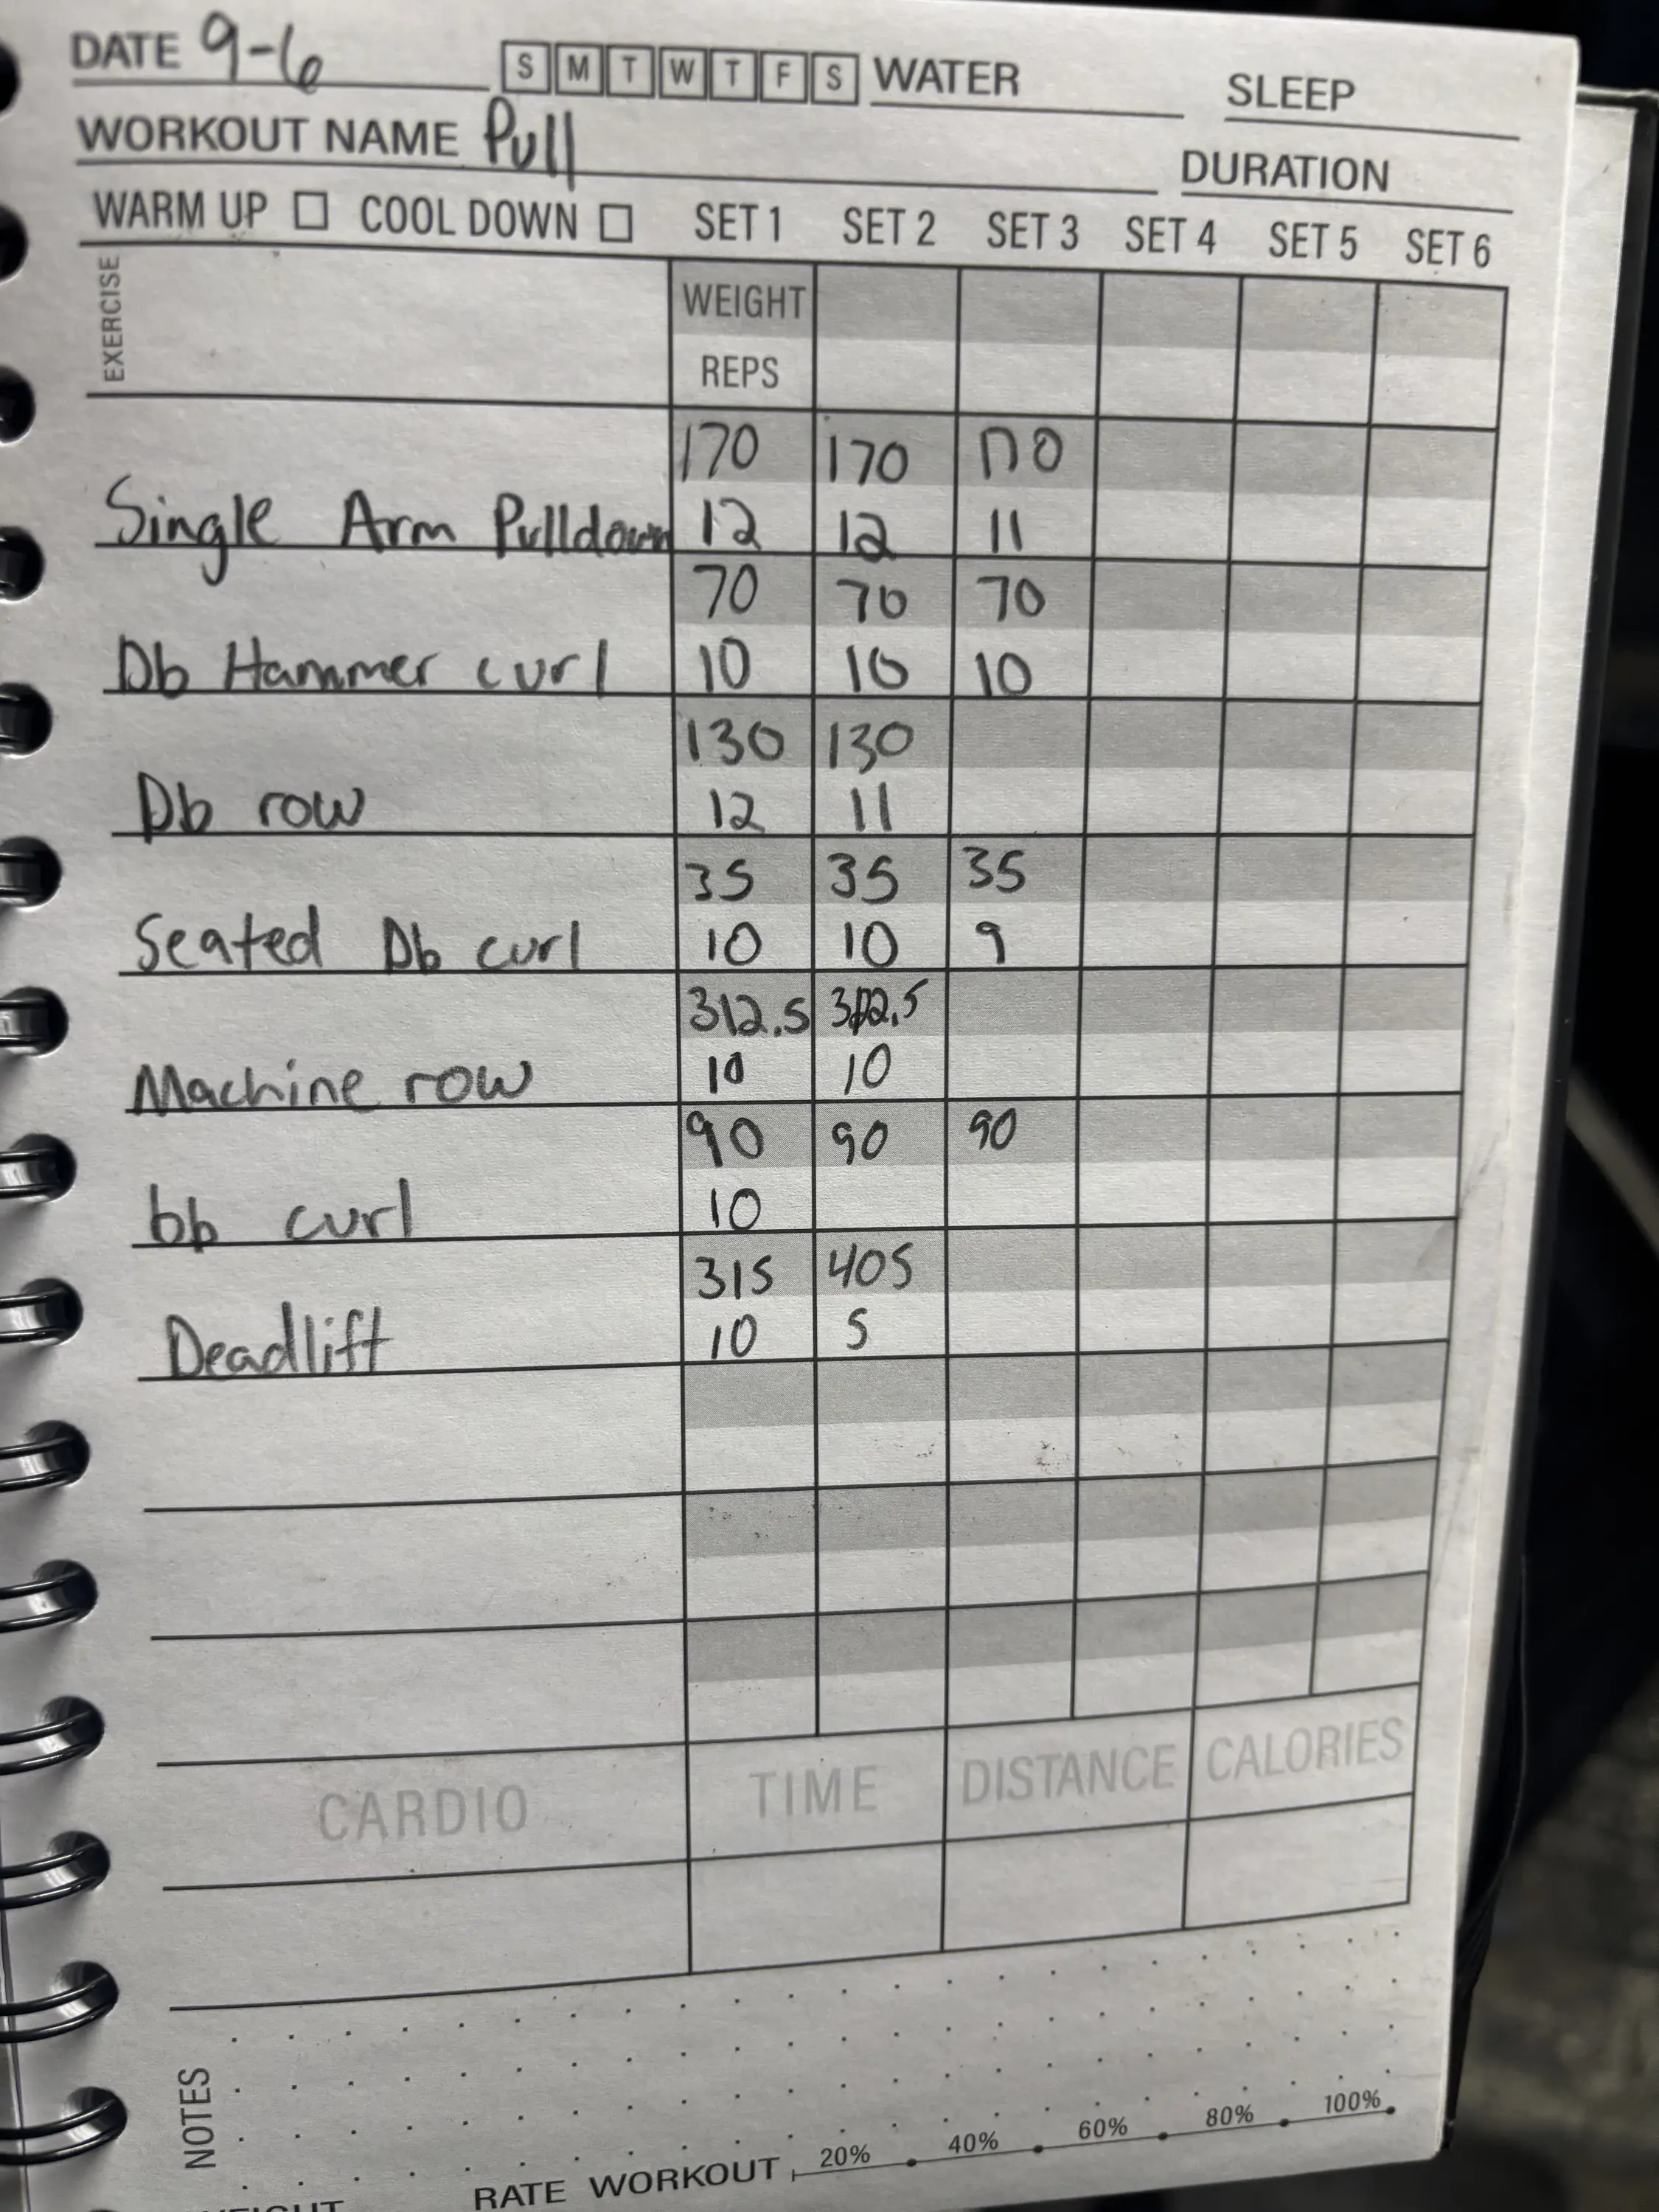 DATE 9-6 S M T W T F S WATER SLEEP
WORKOUT NAME Pull DURATION
WARM UP COOL DOWN SET 1 SET 2 SET 3 SET 4 SET 5 SET 6
EXERCISE WEIGHT
REPS
170 170 170
Single Arm Pulldown 12 12 11
70 70 70
Db Hammer curl 10 10 10
130 130
Db row 12 11
35 35 35
Seated Db curl 10 10 9
312.5 312.5
Machine row 10 10
90 90 90
bb curl 10
315 405
Deadlift 10 5
CARDIO TIME DISTANCE CALORIES
NOTES
RATE WORKOUT 20% 40% 60% 80% 100%